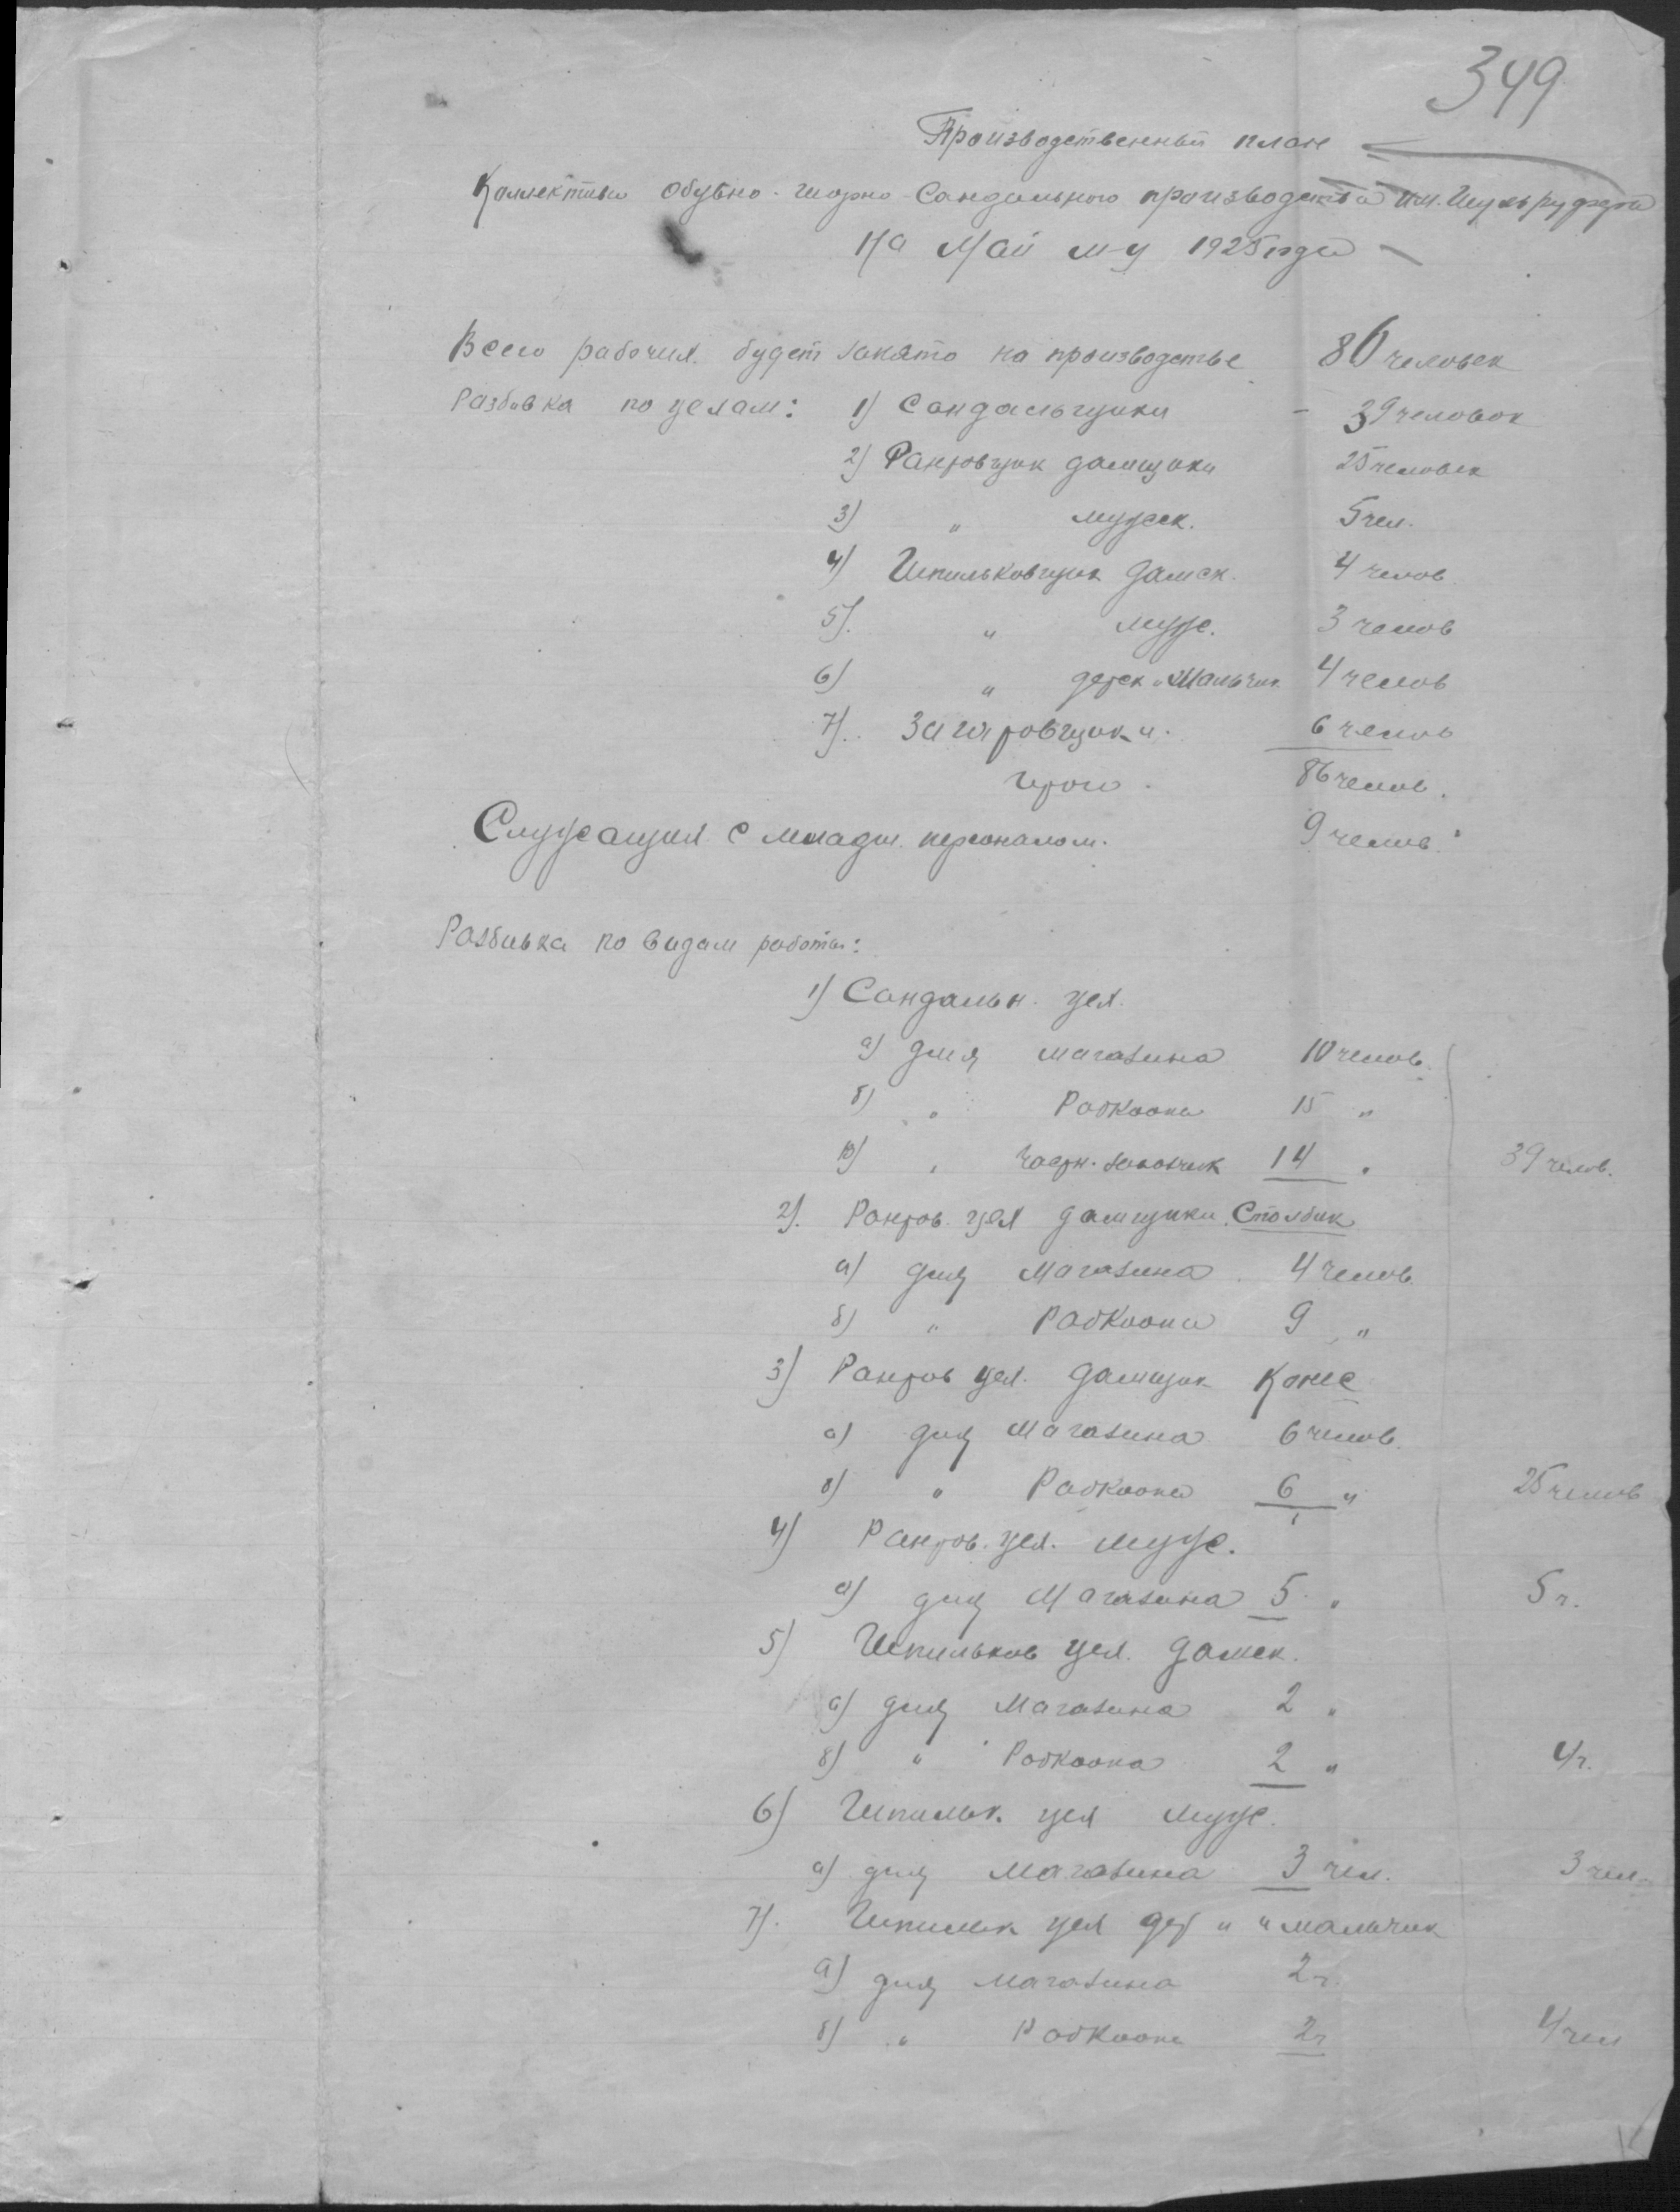 349
Производственный план
Коллектива Обувно-шорно-Сандального производства им.
На Май м-ц 1925 года
Всего рабочих будет занято на производстве 86 человек
Разбивка по цехам: 1) Сандальщики - 39 человек
2) Рантовщик дамщики 25 человек
3) " мужск. 5 чел.
4) Шпильковщик дамск. 4 челов.
5). " муж. 3 челов
6) " детск и Мальчик 4 челов
7). Заготовщики. 6 челов
Итого. 86 челов.
Служащих с младш. персоналом. 9 челов.
Разбивка по видам работы:
1) Сандальн. цех.
а) для магазина 10 челов.
б) " Рабкоопа 15 "
в) " Частн. заказчик 14 " 39 челов.
2). Рантов. цех дамщики Столбик
а) для Магазина 4 челов.
б) " Рабкоопа 9 "
3) Рантов цех. дамщик
а) для Магазина 6 челов.
б) " Рабкоопа 6 " 25 челов
4) Рантов. цех. муж.
а) для Магазина 5 " 5 ч.
5) Шпильков цех. дамск.
а) для Магазина 2 "
б) " Рабкоопа 2 " 4 ч.
6) Шпильк. цех муж.
а) для Магазина 3 чел. 3 чел.
7). Шпильк цех дет " " мальчик
а) для магазина 2 ч.
б) " Рабкоопа 2 ч 4 чел